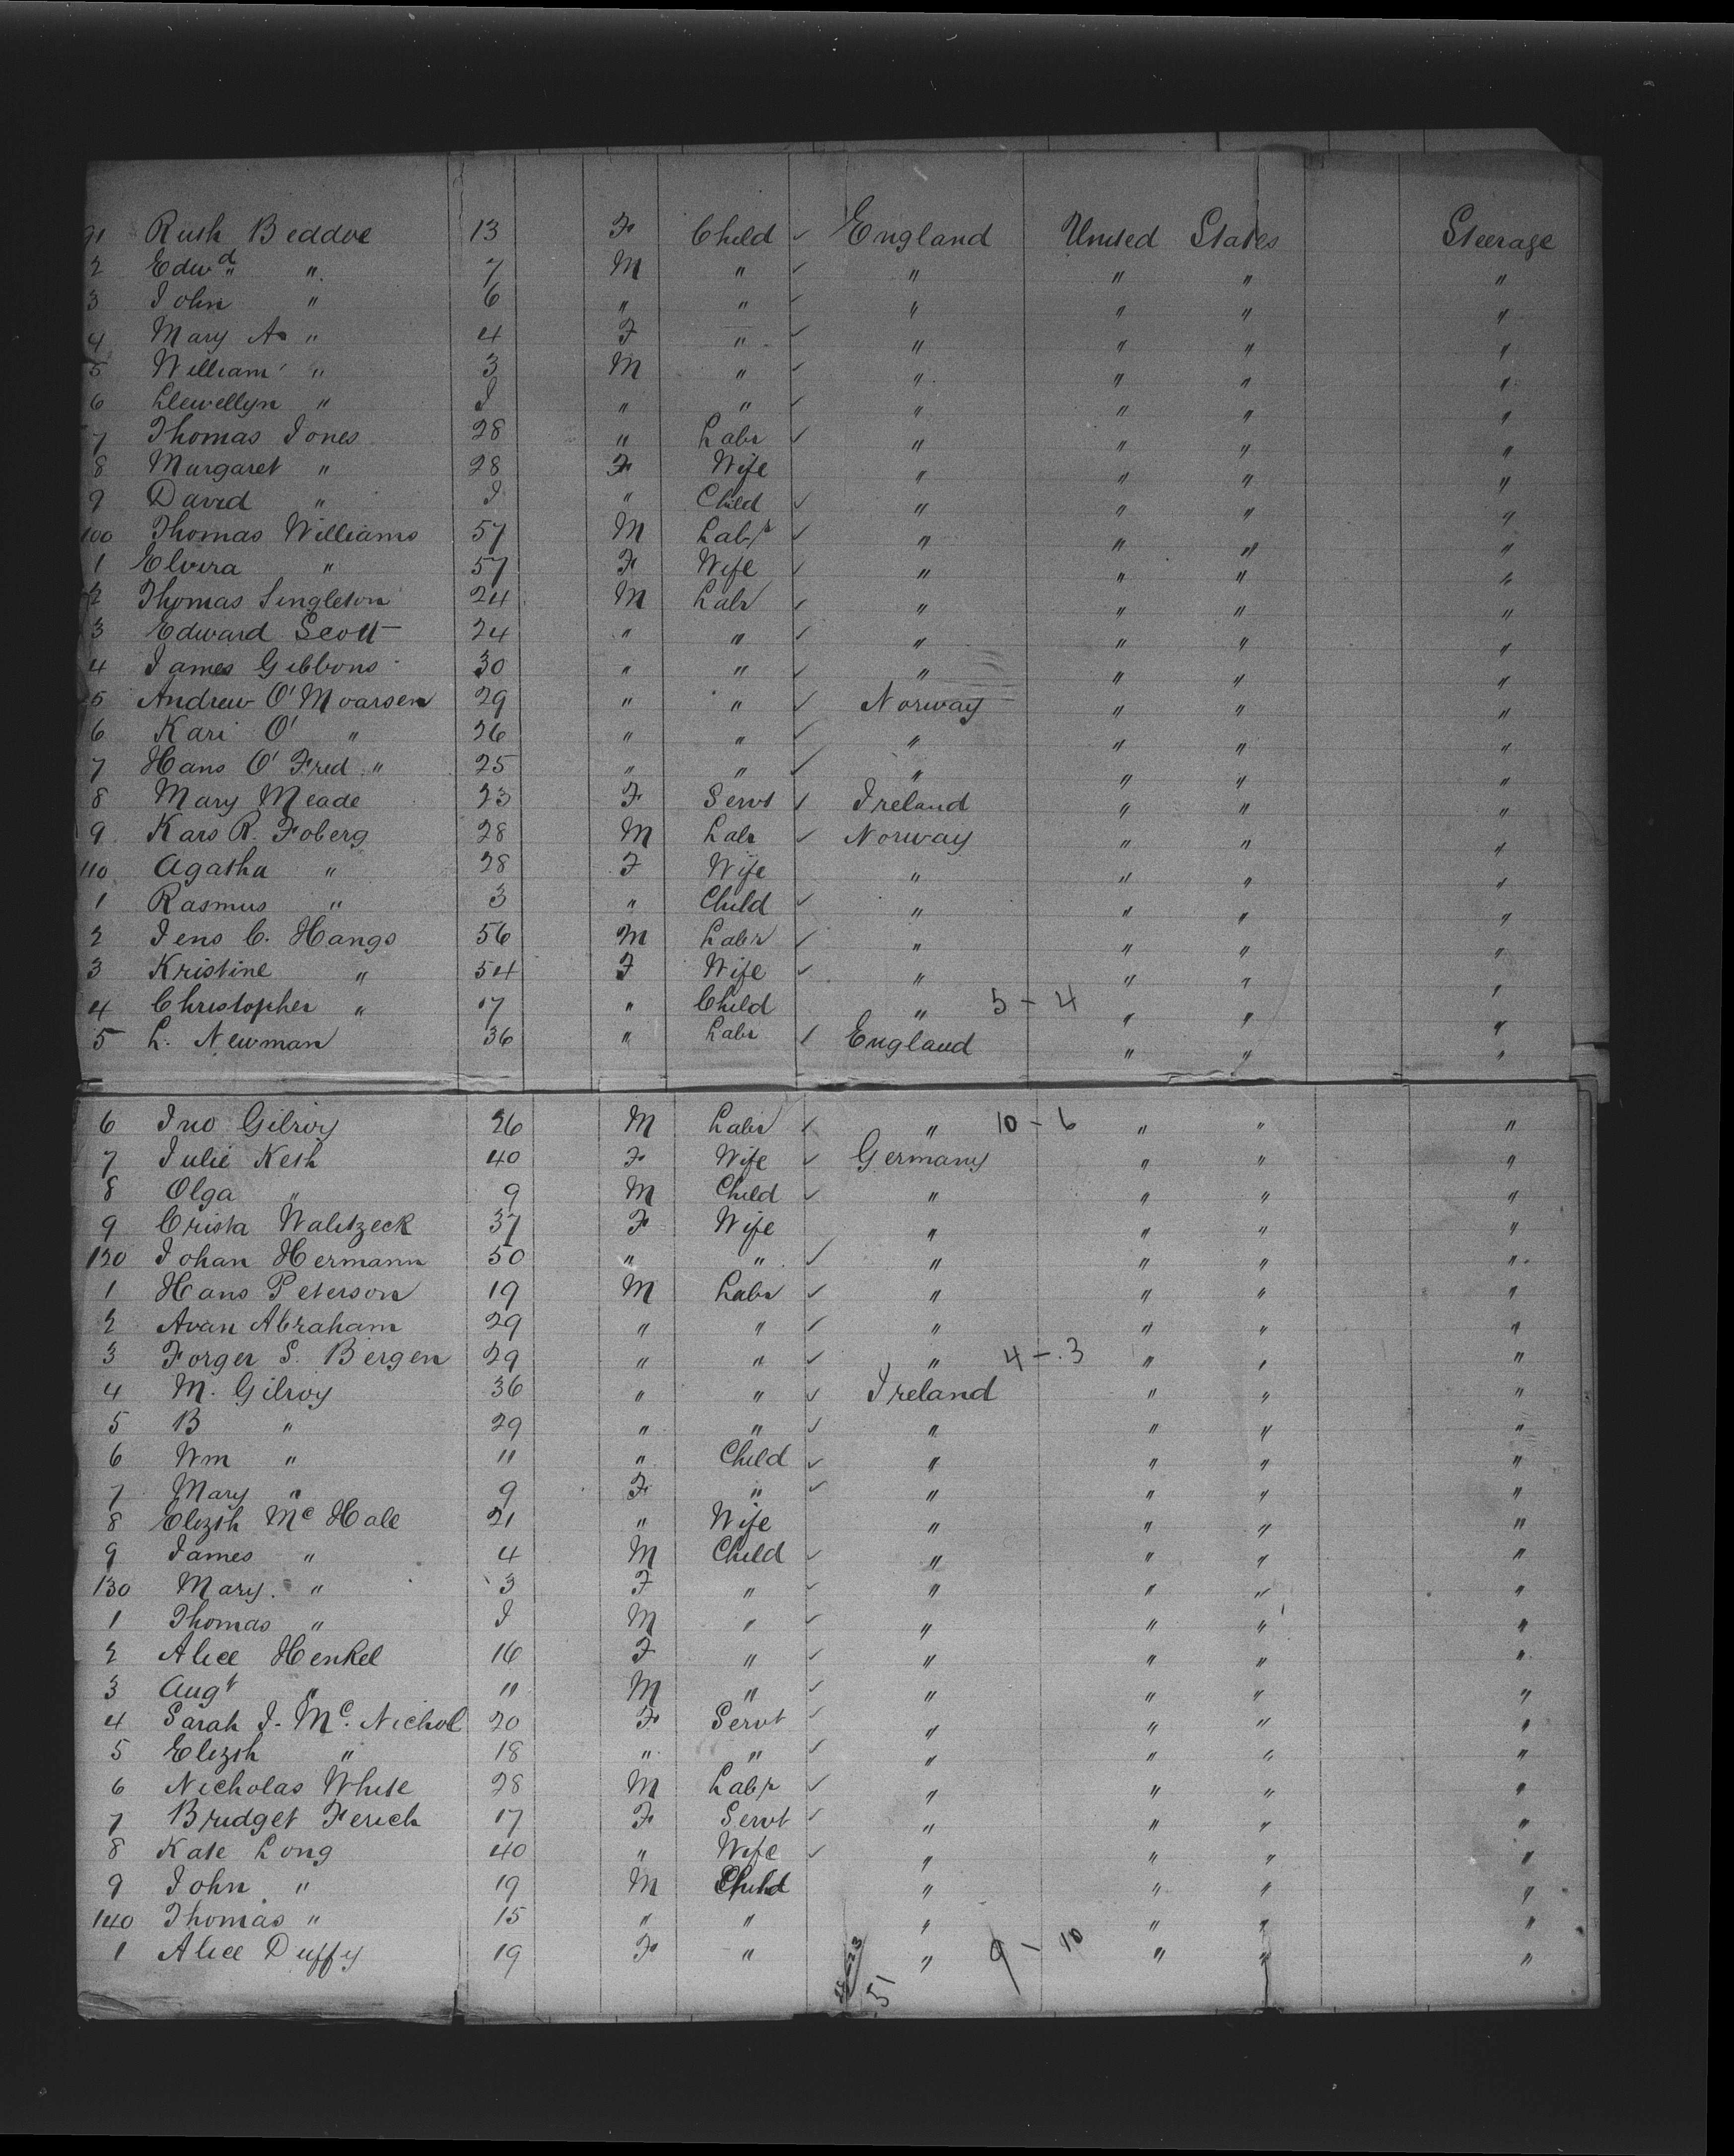 91 Ruth Beddoe 13 F Child ✓ England United States Steerage
2 Edwd " 7 M " ✓ " " " "
3 John " 6 " " ✓ " " " "
4 Mary A " 4 F " ✓ " " " "
5 William " 3 M " ✓ " " " "
6 Llewellyn " I " " ✓ " " " "
7 Thomas Jones 28 " Labr ✓ " " " "
8 Margaret " 28 F Wife " " " "
9 David " I " Child ✓ " " " "
100 Thomas Williams 57 M Labr ✓ " " " "
1 Elvira " 57 F Wife ✓ " " " "
2 Thomas Singleton 24 M Labr ✓ " " " "
3 Edward Scott 24 " " ✓ " " " "
4 James Gibbons 30 " " ✓ " " " "
5 Andrew O' Moarsen 29 " " ✓ Norway " " "
6 Kari O' " 26 " " ✓ " " " "
7 Hans O' Fred " 25 " " ✓ " " " "
8 Mary Meade 23 F Servt ✓ Ireland " " "
9 Kars R. Foberg 28 M Labr ✓ Norway " " "
110 Agatha " 28 F Wife " " " "
1 Rasmus " 3 " Child ✓ " " " "
2 Jens C. Hangs 56 M Labr ✓ " " " "
3 Kristine " 54 F Wife ✓ " " " "
4 Christopher " 17 " Child " 5 - 4 " " "
5 L. Newman 36 " Labr ✓ England " " "
6 Jno Gilroy 26 M Labr ✓ " 10 - 6 " " "
7 Julie Kesh 40 F Wife ✓ Germany " " "
8 Olga " 9 M Child ✓ " " " "
9 Crista Walitzeck 37 F Wife " " " "
120 Johan Hermann 50 " " ✓ " " " "
1 Hans Peterson 19 M Labr ✓ " " " "
2 Avan Abraham 29 " " ✓ " " " "
3 Forger S. Bergen 29 " " ✓ " 4 - 3 " " "
4 M. Gilroy 36 " " ✓ Ireland " " "
5 B " 29 " " ✓ " " " "
6 Wm " 11 " Child ✓ " " " "
7 Mary " 9 F " ✓ " " " "
8 Elizth Mc Hale 21 " Wife " " " "
9 James " 4 M Child ✓ " " " "
130 Mary. " 3 F " ✓ " " " "
1 Thomas " I M " ✓ " " " "
2 Alice Henkel 16 F " ✓ " " " "
3 Augt " 11 M " ✓ " " " "
4 Sarah J. Mc. Nichol 20 F Servt ✓ " " " "
5 Elizth " 18 " " ✓ " " " "
6 Nicholas White 28 M Labr ✓ " " " "
7 Bridget Ferich 17 F Servt ✓ " " " "
8 Kate Long 40 " Wife ✓ " " " "
9 John " 19 M Child " " " "
140 Thomas " 15 " " " " " "
1 Alice Duffy 19 F " " 9 - 10 " " "
51